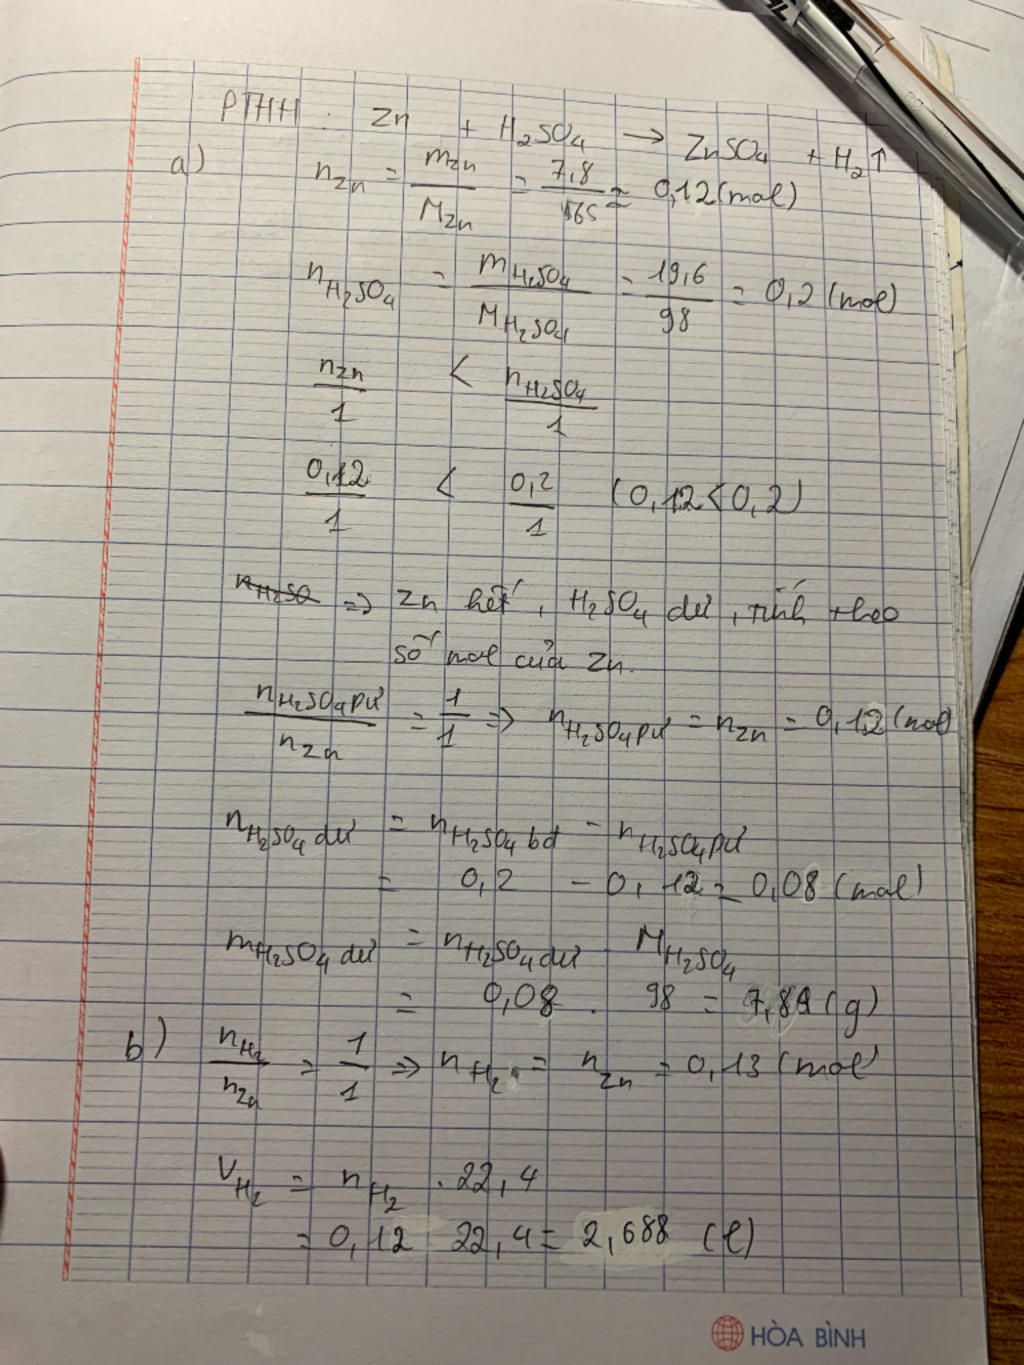 PTHH : Zn + H₂SO₄ → ZnSO₄ + H₂↑
a) n_Zn = m_Zn / M_Zn = 7,8 / 65 = 0,12 (mol)
n_H₂SO₄ = m_H₂SO₄ / M_H₂SO₄ = 19,6 / 98 = 0,2 (mol)
n_Zn / 1 < n_H₂SO₄ / 1
0,12 / 1 < 0,2 / 1 (0,12 < 0,2)
n_H₂SO ⇒ Zn hết, H₂SO₄ dư, tính theo
số mol của Zn.
n_H₂SO₄ pư / n_Zn = 1 / 1 ⇒ n_H₂SO₄ pư = n_Zn = 0,12 (mol)
n_H₂SO₄ dư = n_H₂SO₄ bđ - n_H₂SO₄ pư
= 0,2 - 0,12 = 0,08 (mol)
m_H₂SO₄ dư = n_H₂SO₄ dư . M_H₂SO₄
= 0,08 . 98 = (g)
b) n_H₂ / n_Zn = 1 / 1 ⇒ n_H₂ = n_Zn = 0,13 (mol)
V_H₂ = n_H₂ . 22,4
= 0,12 22,4 = 2,688 (l)
HÒA BÌNH